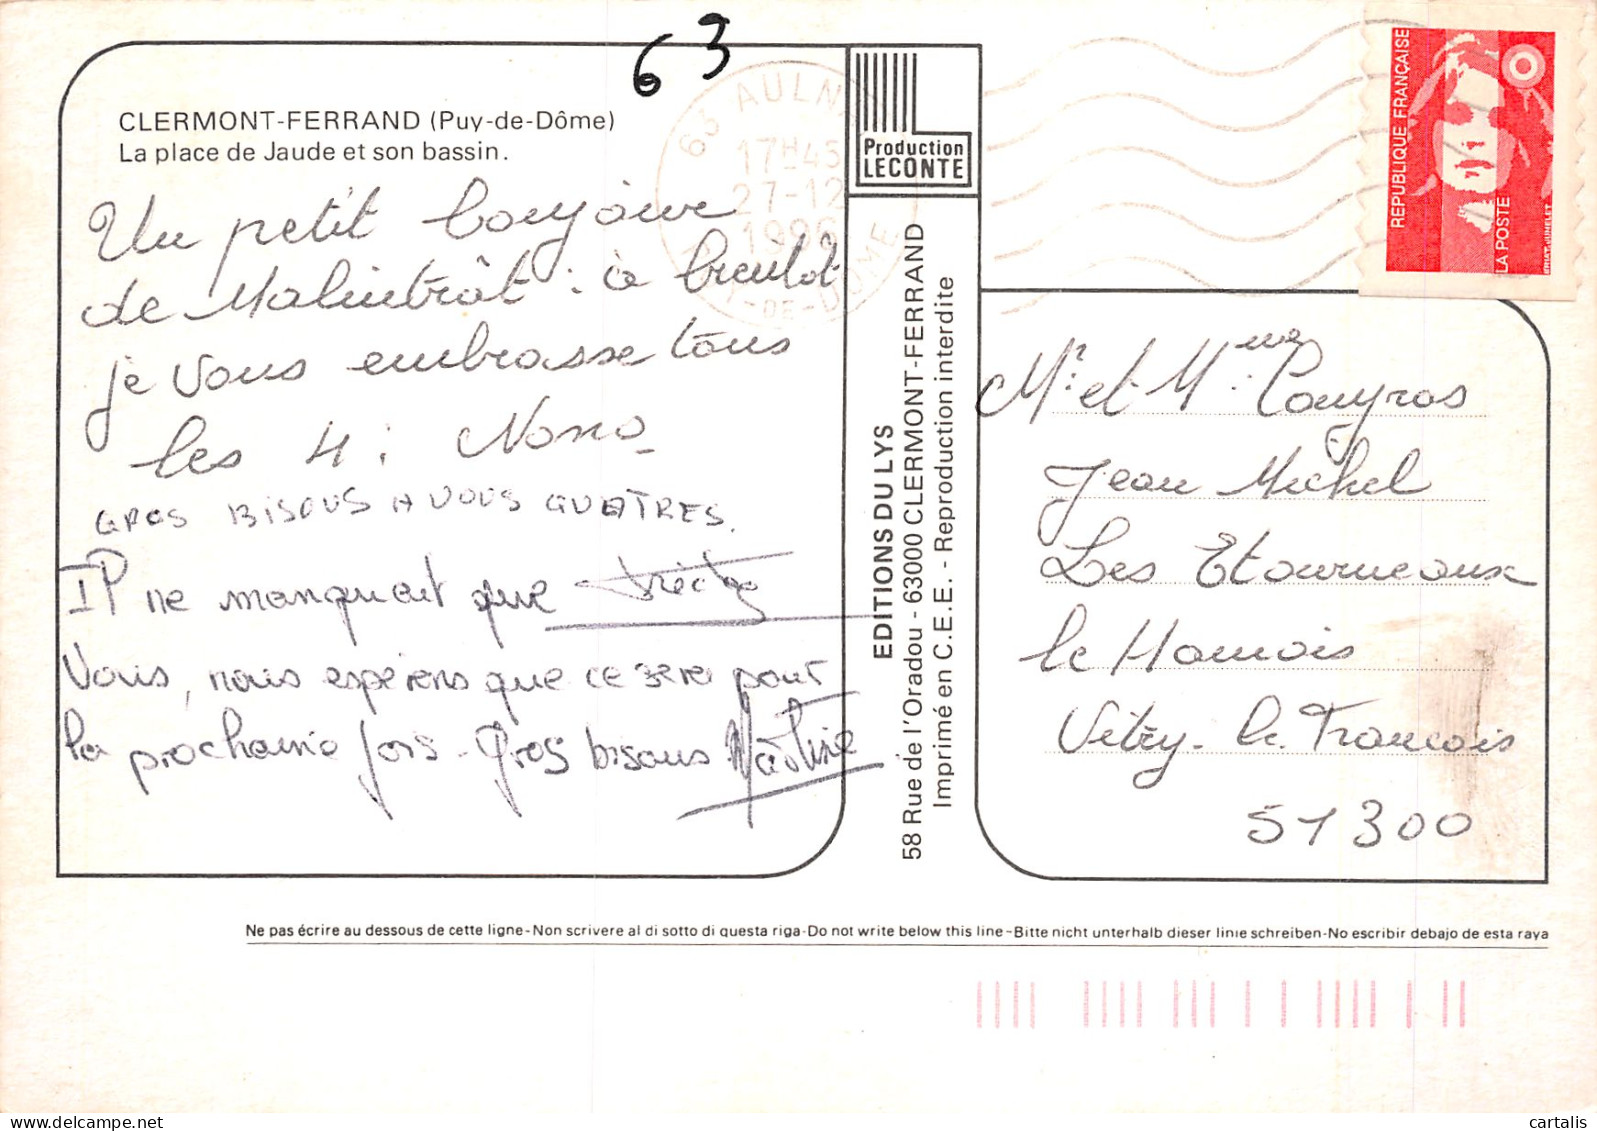 63
CLERMONT-FERRAND (Puy-de-Dôme)
La place de Jaude et son bassin.
Un petit bonjour
de Malintrât : à bientôt
je vous embrasse tous
les 4 : Nono
GROS BISOUS A VOUS QUATRES.
Il ne manquait que
Vous, nous espérons que ce sera pour
la prochaine fois - Gros bisous Martine
63 AULN
17H45
27-12
199
PUY-DE-DOME
Production
LECONTE
EDITIONS DU LYS
58 Rue de l'Oradou - 63000 CLERMONT-FERRAND
Imprimé en C.E.E. - Reproduction interdite
REPUBLIQUE FRANÇAISE
LA POSTE
Mr. et Mme. Couyras
Jean Michel
Les Etourneaux
le Hamois
Vitry-le-Francois
51300
Ne pas écrire au dessous de cette ligne-Non scrivere al di sotto di questa riga-Do not write below this line-Bitte nicht unterhalb dieser linie schreiben-No escribir debajo de esta raya
cartalis